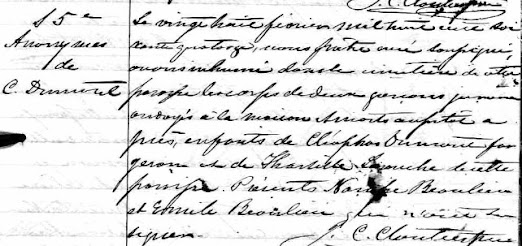 J. C. Cloutier ptre
S 5e
Anonymes
de
C. Dumont
Le vingt huit février mil huit cent soi
xante quatorze, nous prêtre curé soussigné,
avons inhumé dans le cimetière de cette
paroisse les corps de deux garçons jumeaux
ondoyés à la maison et morts aussitôt a
près, enfants de Cléophas Dumont for
geron et de de cette
paroisse. Présents Beaulieu
et Emile Beaulieu qui n'ont su
signer.
J. C. Cloutier ptre